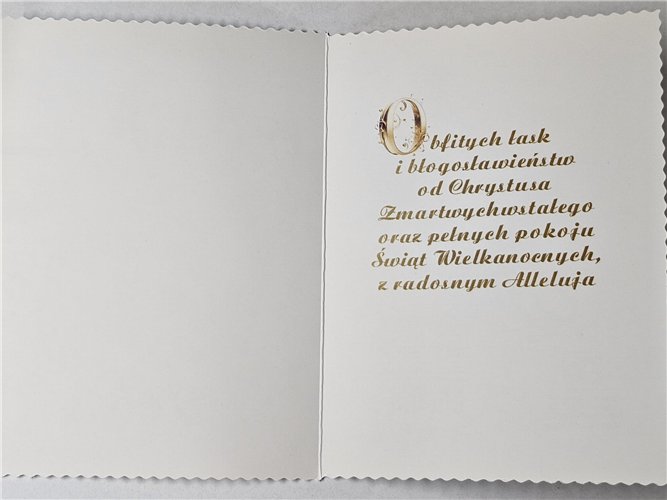 Obfitych łask
i błogosławieństw
od Chrystusa
Zmartwychwstałego
oraz pełnych pokoju
Świąt Wielkanocnych,
z radosnym Alleluja